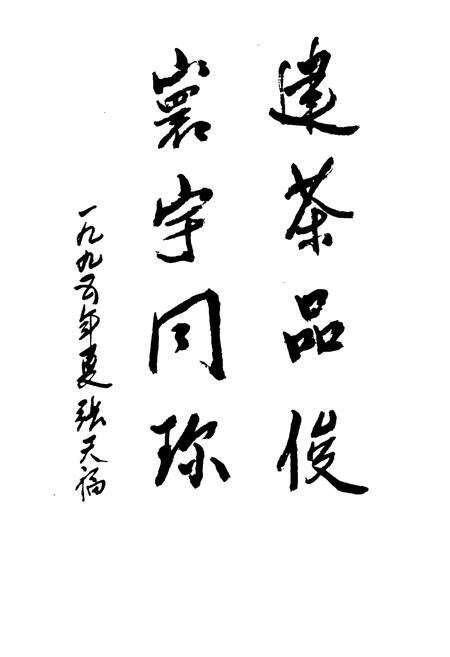 建茶品俊
寰宇同珎
一九九五年夏 张天福